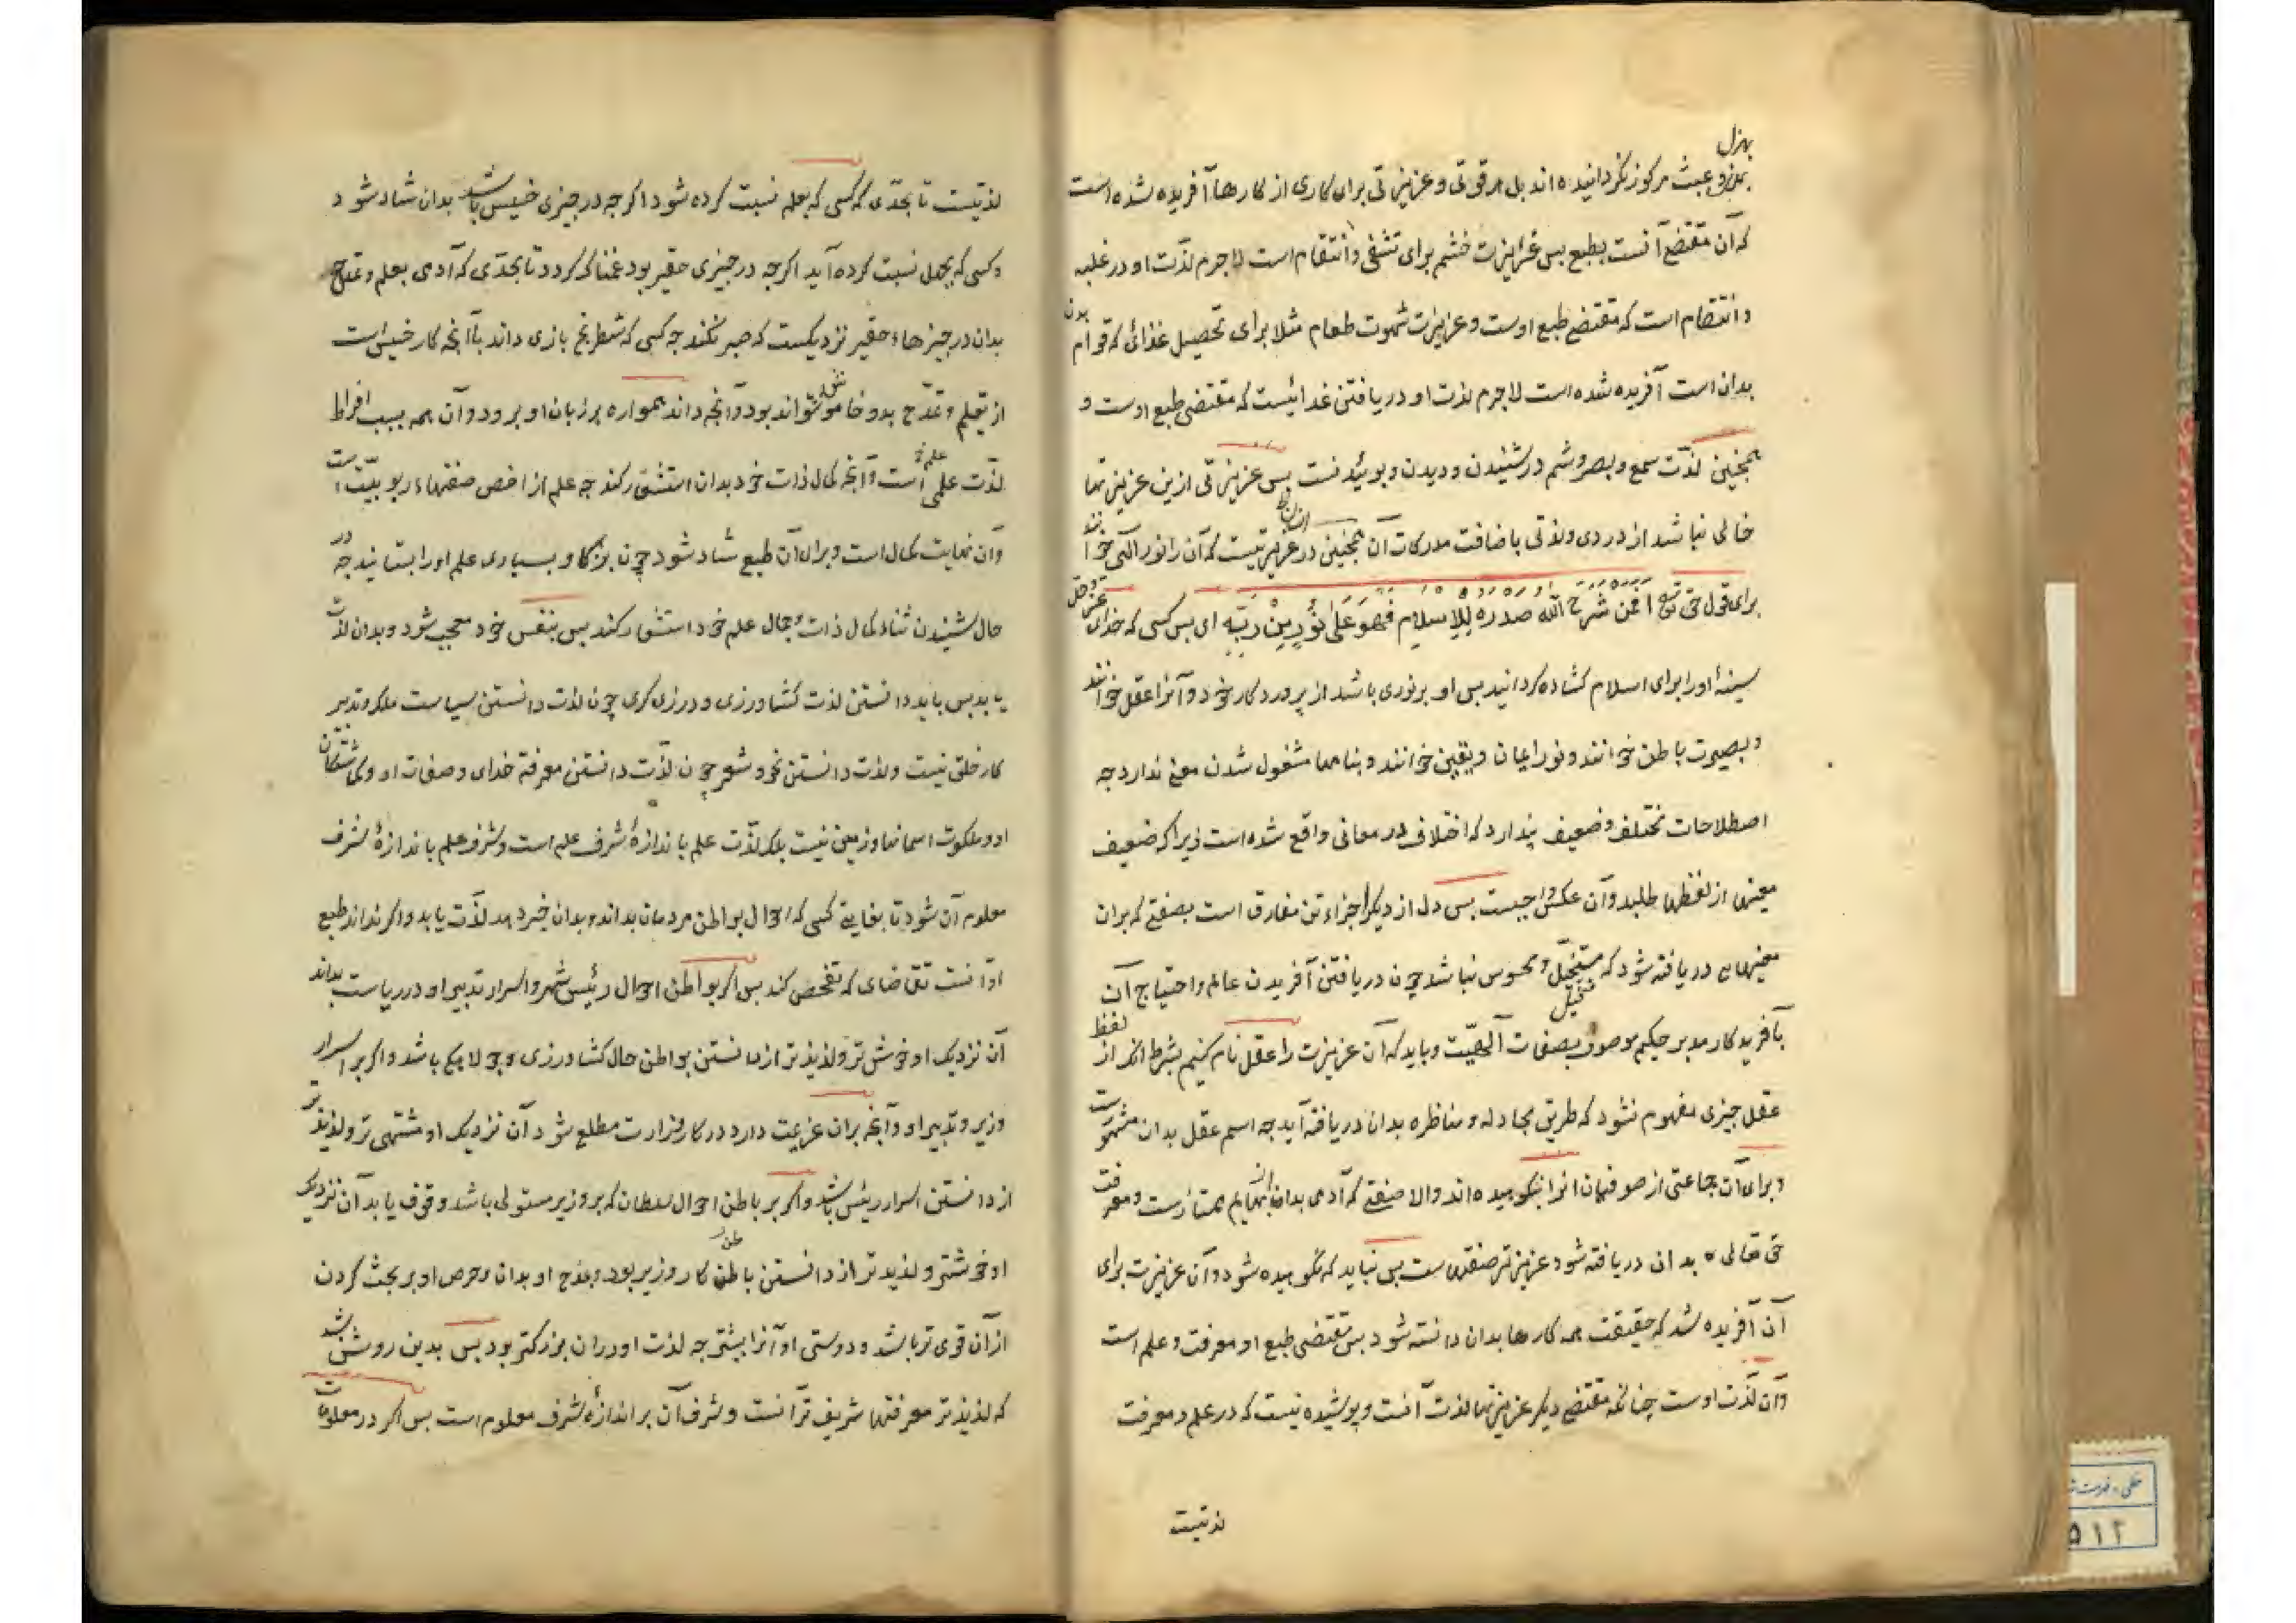 بهزل
بهزل و عبث مرکوز نکردانیده اند بل هر قوتی و غریزتی برای کاری از کارها آفریده شده است
که آن مقتضع آنست بطبع بس غریزت خشم برای تشفی و انتقام است لاجرم لذت او در غلبه
و انتقام است که مقتضع طبع اوست و غریزت شهوت طعام مثلا برای تحصیل غذائی که قوام بدن
بدان است آفریده شده است لاجرم لذت او در یافتن غذائیست که مقتضی طبع اوست و
همجنین لذت سمع و بصر و شم در شنیدن و دیدن و بوئیدنست بس غریزتی ازین غریزتها
خالی نباشد از دردی و لذتی باضافت مدرکات آن همجنین در غریزتیست که آن را نور الهی خوانند
برای قول حق تع افمن شرح الله صدره للاسلام فهو علی نور من ربه ای بس کسی که خدای عز و جل
سینهٔ او را برای اسلام کشاده کردانید بس او بر نوری باشد از پروردکار خود و آنرا عقل خوانند
و بصیرت باطن خوانند و نور ایمان و یقین خوانند و بنامها مشغول شدن معنی ندارد جه
اصطلاحات مختلف و ضعیف پندارد که اختلاف در معانی واقع شده است زیرا که ضعیف
معنیها از لفظها طلبد و آن عکس واجبست بس دل از دیکر اجزاء تن مفارق است بصفتی که بران
معنیهایی دریافته شود که متخیل و محسوس نباشد چون دریافتن آفریدن عالم و احتیاج آن
بآفریدکار مدبر حکیم موصوف بصفات آلهیت و باید که آن غریزت را عقل نام کنیم بشرط انکه از لفظ
عقل جیزی مفهوم نشود که طریق مجادله و مناظره بدان دریافته آید جه اسم عقل بدان مشهورست
و برای آن جماعتی از صوفیان انرا نکوهیده اند والا صفتی که آدمی بدان از بهایم ممتازست و معرفت
حق تعالی بدان دریافته شود عزیزتر صفتهاست بس نباید که نکوهیده شود و آن غریزت برای
آن آفریده شد که حقیقت همه کارها بدان دانسته شود بس مقتضی طبع او معرفت و علم است
و آن لذت اوست چنانکه مقتضع دیکر غریزتها لذت آنست و پوشیده نیست که در علم و معرفت
لذتیست
لذتیست تا بحدی که کسی که بعلم نسبت کرده شود اکرجه در جیزی خسیس باشد بدان شاد شود
و کسی که بجهل نسبت کرده آید اکرجه در جیزی حقیر بود غمناک کردد تا بحدی که آدمی بعلم و تمدح
بدان در جیزهاء حقیر نزدیکست که صبر نکند جه کسی که شطرنج بازی داند باآنجه کار خسیس است
از تعلم و تمدح بدو خاموش نتواند بود و آنجه داند همواره بر زبان او برود و آن همه بسبب افراط
لذت علم است و آنجه کمال ذات خود بدان استشعار کند جه علم از اخص صفتهاء ربوبیتست
و آن نهایت کمال است و برای آن طبع شاد شود چون بزکا و بسیاری علم او را بستایند جه در
حال شنیدن ثنا کمال ذات و جمال علم خود استشعار کند بس بنفس خود معجب شود و بدان لذت
یابد بس باید دانستن لذت کشاورزی و درزی کری چون لذت دانستن سیاست ملک و تدبیر
کار خلق نیست و لذت دانستن نحو و شعر چون لذت دانستن معرفة خدای و صفات او و فرشتکان
او و ملکوت اسمانها و زمین نیست بلکه لذت علم باندازهٔ شرف علم است و شرف علم باندازهٔ شرف
معلوم آن شود تا بغایتی کسی که احوال بواطن مردمان بداند و بدان خبر دهد لذت یابد و اکر نداند طبع
او آنست تقاضای که تفحص کند بس اکر بواطن احوال رئیس شهر و اسرار تدبیر او در ریاست بداند
آن نزدیک او خوش تر و لذیذ تر از دانستن بواطن حال کشاورزی و جولاهکی باشد و اکر بر اسرار
وزیر و تدبیر او و آنجه بران عزیمت دارد در کار وزارت مطلع شود آن نزدیک او مشتهی تر و لذیذ تر
از دانستن اسرار رئیس باشد و اکر بر باطن احوال سلطان که بر وزیر مستولی باشد وقوف یابد آن نزدیک
او خوشتر و لذیذ تر از دانستن باطن کار وزیر بود و تمدح او بدان و حرص او بر بحث کردن
از آن قوی تر باشد و دوستی او آنرا بیشتر جه لذت او دران بزرکتر بود بس بدین روشن شد
که لذیذ تر معرفتها شریف تر آنست و شرف آن بر اندازهٔ شرف معلوم است بس اکر در معلومات
۵۱۲